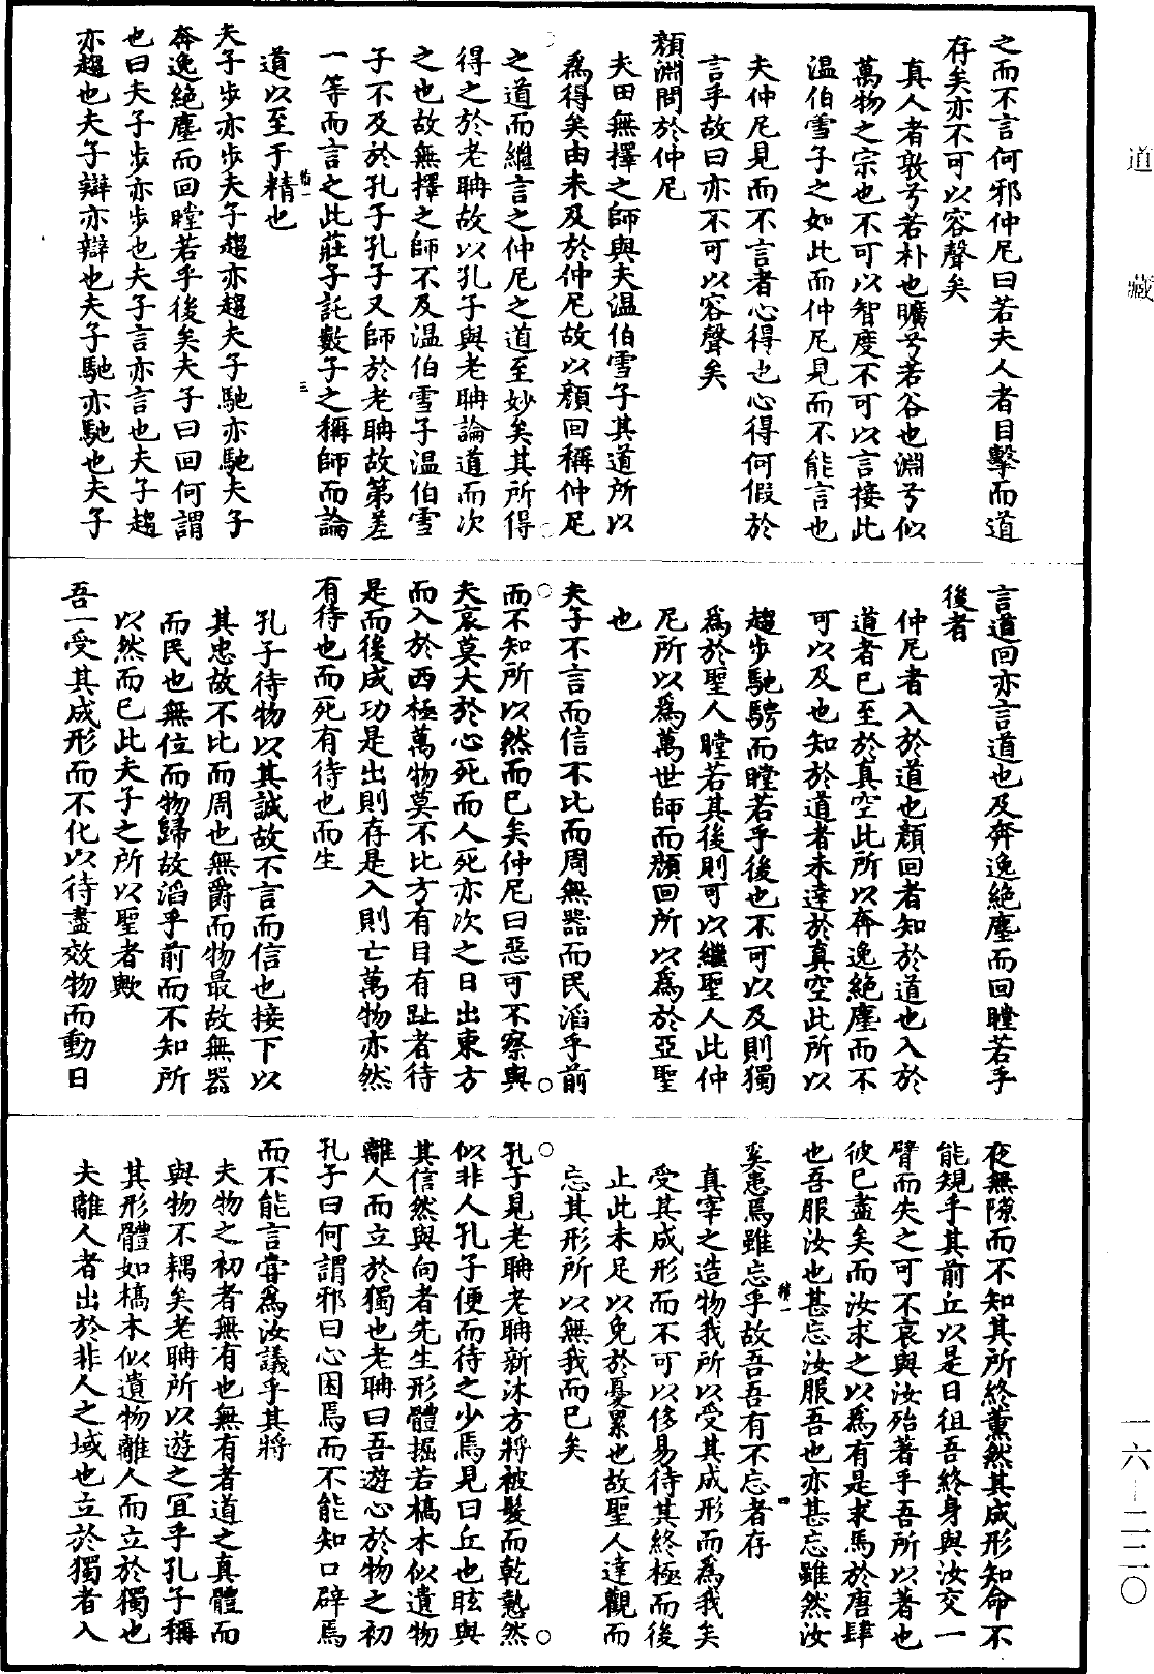 之而不言何邪仲尼曰若夫人者目擊而道
存矣亦不可以容聲矣
真人者敦兮若朴也曠兮若谷也淵兮似
萬物之宗也不可以智度不可以言接此
温伯雪子之如此而仲尼見而不能言也
夫仲尼見而不言者心得也心得何假於
言乎故曰亦不可以容聲矣
顏淵問於仲尼
夫田無擇之師與夫温伯雪子其道所以
爲得矣由未及於仲尼故以顏回稱仲尼
之道而繼言之仲尼之道至妙矣其所得
得之於老聃故以孔子與老聃論道而次
之也故無擇之師不及温伯雪子温伯雪
子不及於孔子孔子又師於老聃故第差
一等而言之此莊子託數子之稱師而論
道以至于精也
夫子步亦步夫子趨亦趨夫子馳亦馳夫子
奔逸絕塵而回瞠若乎後矣夫子曰回何謂
也曰夫子步亦步也夫子言亦言也夫子趨
亦趨也夫子辯亦辯也夫子馳亦馳也夫子
言道回亦言道也及奔逸絕塵而回瞠若乎
後者
仲尼者入於道也顏回者知於道也入於
道者已至於真空此所以奔逸絕塵而不
可以及也知於道者未達於真空此所以
趨步馳騁而瞠若乎後也不可以及則獨
爲於聖人瞠若其後則可以繼聖人此仲
尼所以爲萬世師而顏回所以爲於亞聖
也
夫子不言而信不比而周無器而民滔乎前
而不知所以然而已矣仲尼曰惡可不察與
夫哀莫大於心死而人死亦次之日出東方
而入於西極萬物莫不比方有目有趾者待
是而後成功是出則存是入則亡萬物亦然
有待也而死有待也而生
孔子待物以其誠故不言而信也接下以
其忠故不比而周也無爵而物最故無器
而民也無位而物歸故滔乎前而不知所
以然而已此夫子之所以聖者歟
吾一受其成形而不化以待盡效物而動日
夜無隙而不知其所終薰然其成形知命不
能規乎其前丘以是日徂吾終身與汝交一
臂而失之可不哀與汝殆著乎吾所以著也
彼已盡矣而汝求之以爲有是求馬於唐肆
也吾服汝也甚忘汝服吾也亦甚忘雖然汝
奚患焉雖忘乎故吾吾有不忘者存
真宰之造物我所以受其成形而爲我矣
受其成形而不可以侈易待其終極而後
止此未足以免於憂累也故聖人達觀而
忘其形所以無我而已矣
孔子見老聃老聃新沐方將被髮而乾慹然
似非人孔子便而待之少焉見曰丘也眩與
其信然與向者先生形體掘若槁木似遺物
離人而立於獨也老聃曰吾遊心於物之初
孔子曰何謂邪曰心困焉而不能知口辟焉
而不能言嘗爲汝議乎其將
夫物之初者無有也無有者道之真體而
與物不耦矣老聃所以遊之宜乎孔子稱
其形體如槁木似遺物離人而立於獨也
夫離人者出於非人之域也立於獨者入
道藏
一六—二二〇